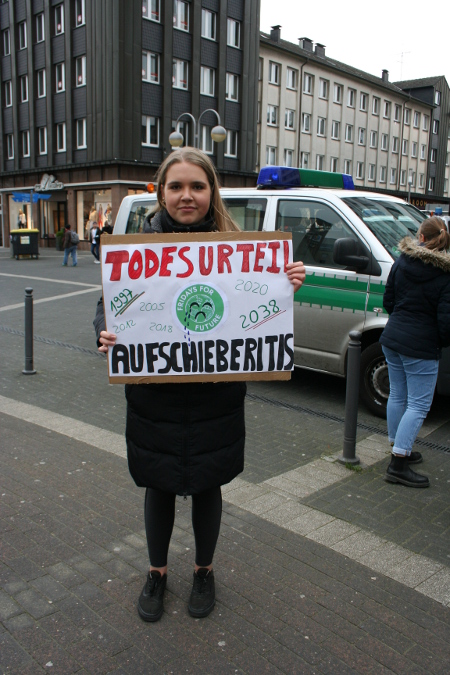 TODESURTEIL
1997
2005
2020
2012
2018
2038
FRIDAYS FOR
FUTURE
AUFSCHIEBERITIS